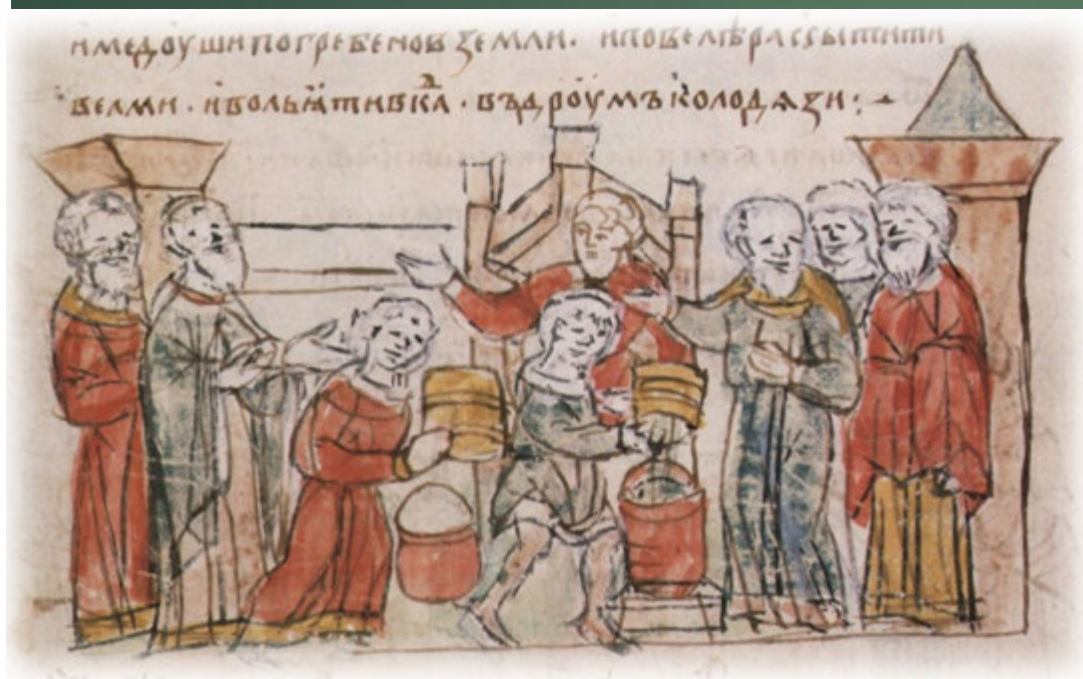 имедоу шипогребенов земли. иповелѣрассытити
велми · ивольꙗтивкаⷣ · въдроумъ колодѧзи :